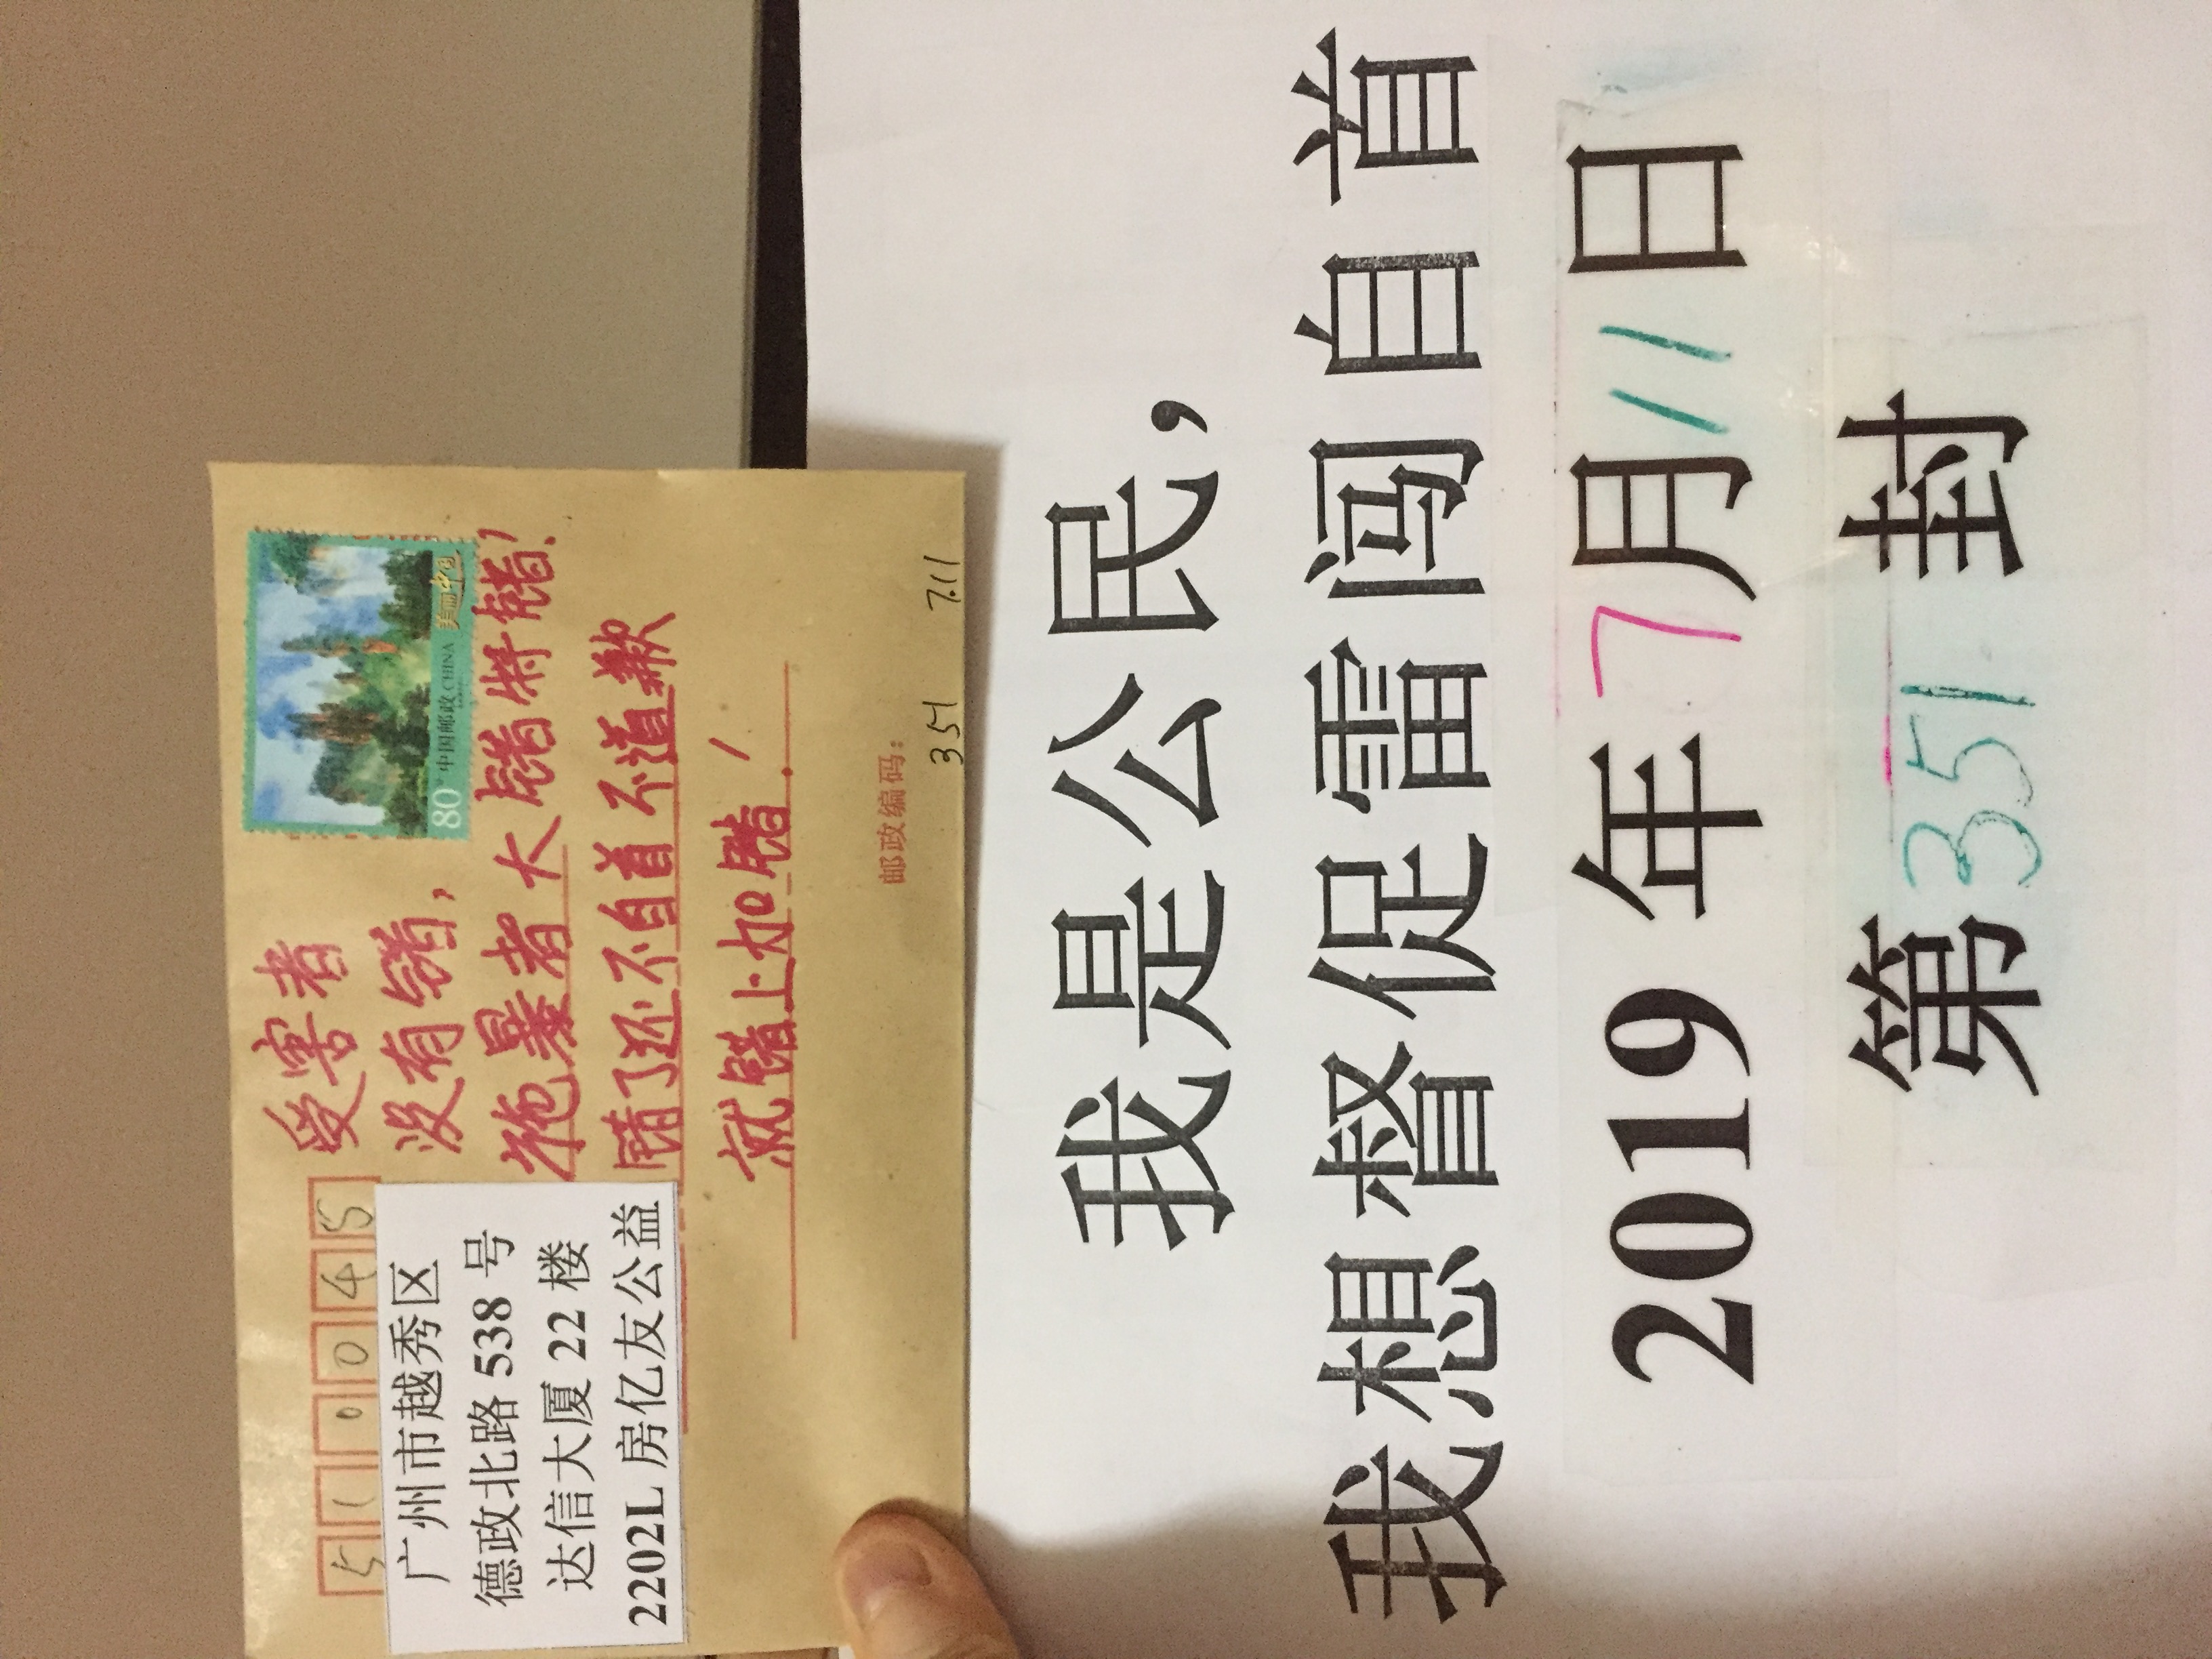 510045
广州市越秀区
德政北路 538 号
达信大厦 22 楼
2202L 房亿友公益
受害者
没有错，
施暴者大错特错！
错了还不自首不道歉
就错上加错！
80分 中国邮政 CHINA 美丽中国
邮政编码：
351 7.11
我是公民，
我想督促雷闯自首
2019 年 7 月 11 日
第 351 封